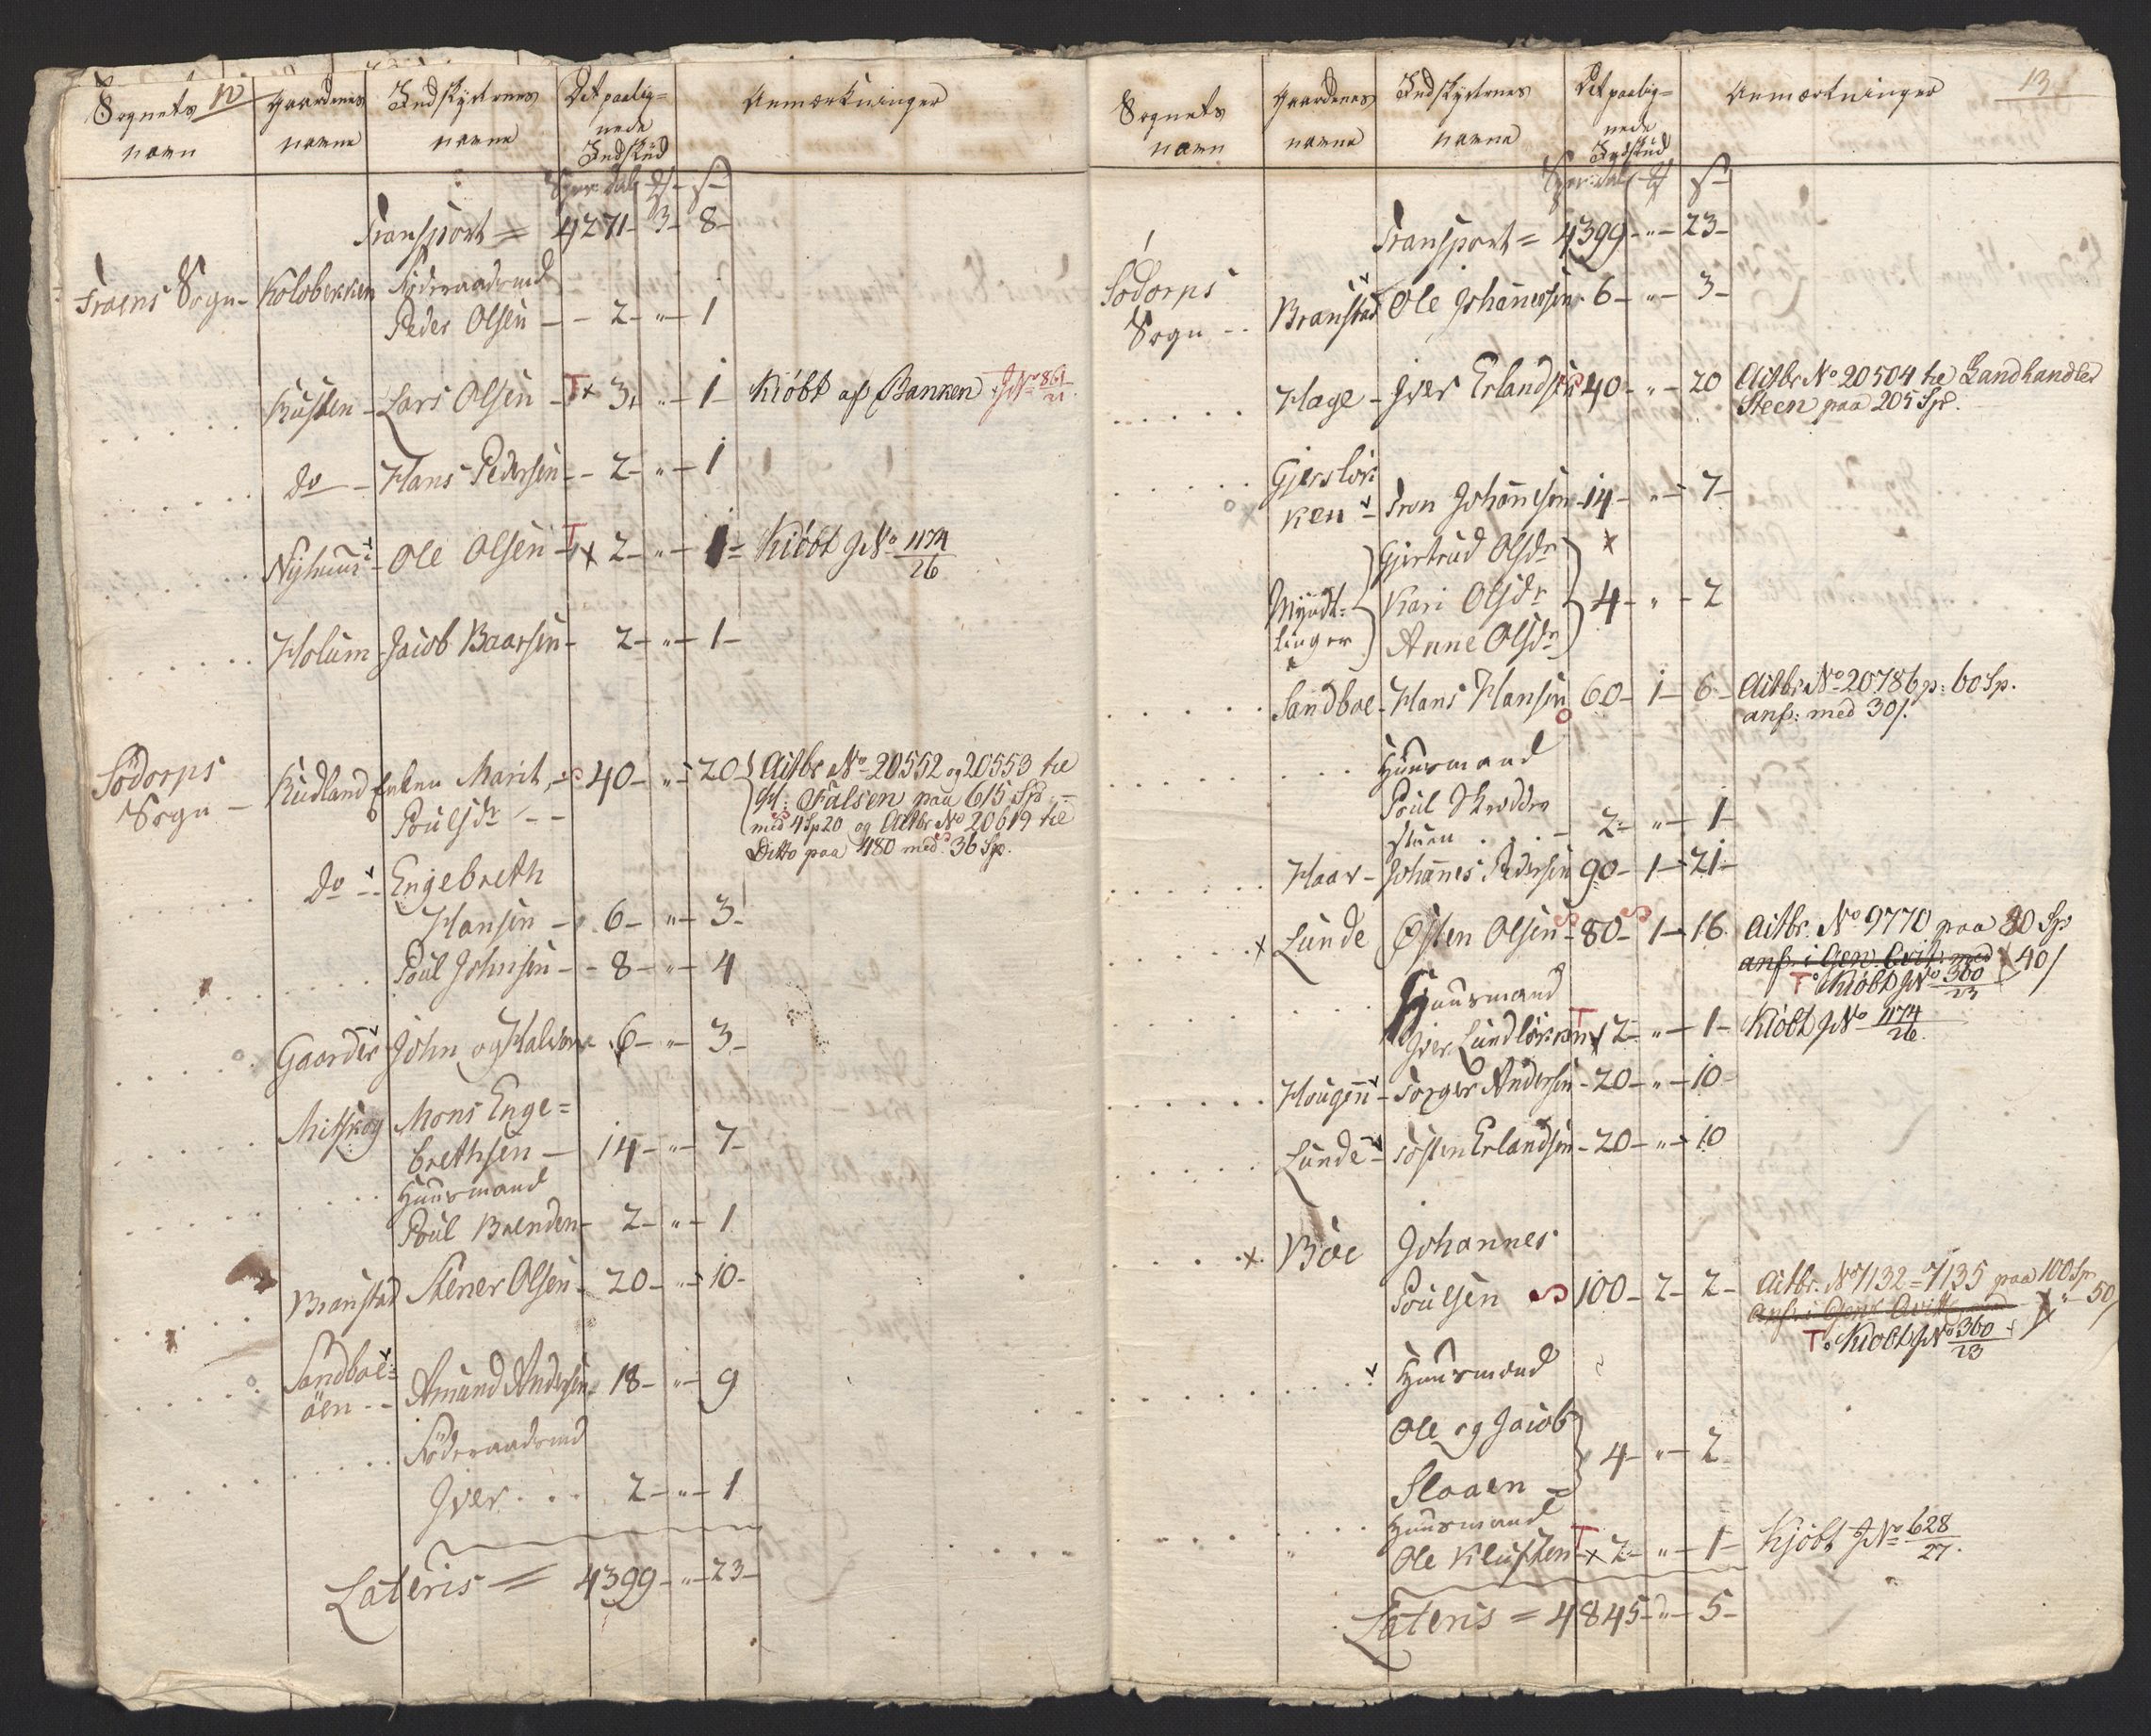 12
Sognets navn | Gaardenes navne | Indskydernes navne | Det paalignede Indskud | Anmærkninger
Spec: dal | ß
Transport = 4271 - 3 - 8 -
Froens Sogn - Kolobekken Föderaadsmd
Peder Olsen - - 2 - " - 1
Rusten - Lars Olsen - T x 3 - " - 1 - Kiöbt af Banken JNo 861/21
do - Hans Pedersen - - 2 - " - 1
Nyhuus - Ole Olsen - T x 2 - " - 1 = Kiöbt JNo 1174/26
Holum - Jacob Baarsen - 2 - " - 1 -
Södorps Sogn - Rudland Enken Marit - S 40 - " - 20 Actbr No 20552 og 20553 til
Poulsdr - - Falsen paa 615 Sp.
med 4 Sp 20 og Actbr No 20619 til
Ditto paa 480 med 36 Sp.
do - - Engebreth
Hansen - 6 - " - 3 -
Poul Johnsen - - 8 - " - 4
Gaarder John og Halvor - 6 - " - 3 -
Mitskog Mons Enge=
brethsen - 14 - " - 7 -
Huusmand
Poul Brenden - 2 - " - 1
Branstad Stener Olsen - 20 - " - 10 -
Sandboe=
öen - - Amund Andersen - 18 - " - 9
Föderaadsmd
Iver . . . 2 - " - 1
Lateris = 4399 - " - 23 -
13
Sognets navn | Gaardenes navne | Indskydernes navne | Det paalignede Indskud | Anmærkninger
Spec: dal | ß
Transport = 4399 - " - 23 -
Södorps
Sogn - - Branstad Ole Johannessen - 6 - " - 3 -
Hage - Iver Erlandsen 40 - " - 20 Actbr No 20504 til Landhandler
Steen paa 205 Spd.
Gjerslök
ken - Tron Johannesen - 14 - " - 7 -
Gjertrud Olsdr x
Myndt= Kari Olsdr 4 - " - 2
linger Anne Olsdr
Sandboe - Hans Hansen 60 - 1 - 6 - Actbr No 20786 p: 60 Sp.
anf: med 30/.
Huusmand
Poul Skredder
stuen . . - 2 - " - 1 -
Haar - Johannes Pedersen 90 - 1 - 21 -
x Lunde Østen Olsen - 80 - 1 - 16 Actbr. No 9770 paa 80 Sp
anf: i Gen. Qvit: med 40/
T Kiöbt JNo 360/23
Huusmand
Iver Lundlökken T x 2 - " - 1 - Kiöbt JNo 1174/26.
Hougen - Torger Andersen - 20 - " - 10 -
Lunde - Tosten Erlandsen - 20 - " - 10
x Böe Johannes
Poulsen S 100 - 2 - 2 - Actbr. No 7132 = 7135 paa 100 Sp
anf: i Gen: Qvitt med - 50/
T. Kiöbt JNo 360/23
Huusmand
Ole og Jacob
4 - " - 2
Slaaen -
Huusmand
Ole Kluften T x 2 - " - 1 - Kjöbt JNo 628/27.
Lateris = 4845 - " - 5 -